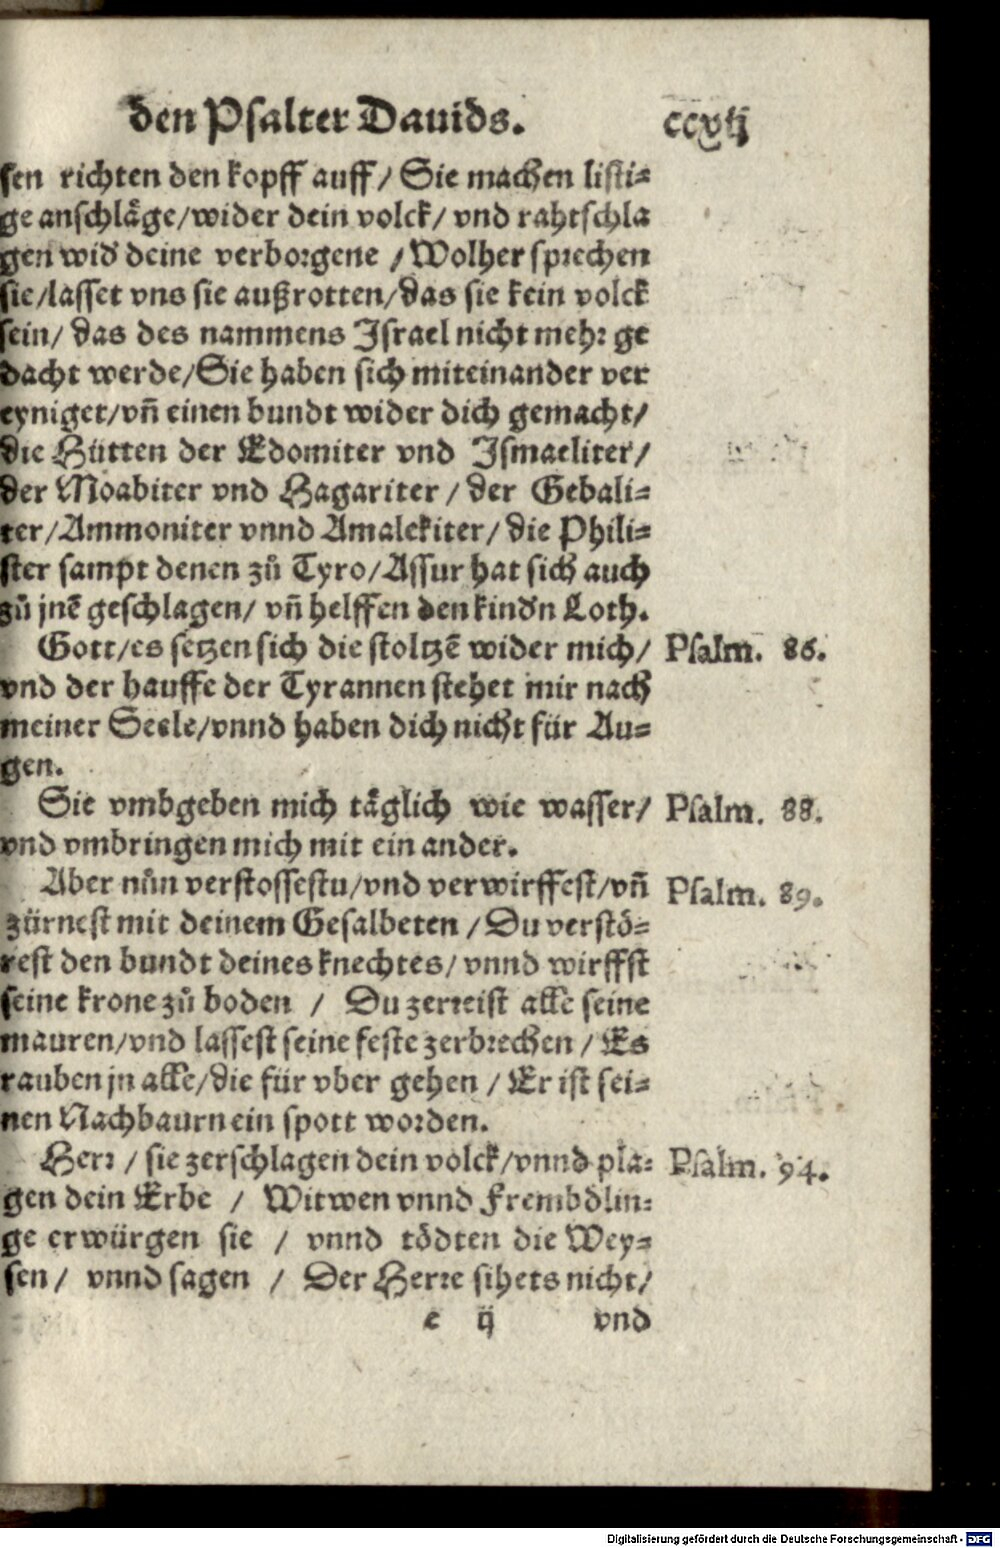 den Psalter Dauids. ccxij
sen richten den kopff auff / Sie machen listi=
ge anschläge / wider dein volck / vnd rahtschla
gen wid' deine verborgene / Wolher sprechen
sie / lasset vns sie außrotten / das sie kein volck
sein / das des nammens Israel nicht mehr ge
dacht werde / Sie haben sich miteinander ver
eyniget / vñ einen bundt wider dich gemacht /
die Hütten der Edomiter vnd Ismaeliter /
der Moabiter vnd Hagariter / der Gebali=
ter / Ammoniter vnnd Amalekiter / die Phili=
ster sampt denen zů Tyro / Assur hat sich auch
zů jnē geschlagen / vñ helffen den kind'n Loth.
Gott / es setzen sich die stoltzē wider mich / Psalm. 86.
vnd der hauffe der Tyrannen stehet mir nach
meiner Seele / vnnd haben dich nicht für Au=
gen.
Sie vmbgeben mich täglich wie wasser / Psalm. 88.
vnd vmbringen mich mit ein ander.
Aber nůn verstossestu / vnd verwirffest / vñ Psalm. 89.
zürnest mit deinem Gesalbeten / Du verstö=
rest den bundt deines knechtes / vnnd wirffst
seine krone zů boden / Du zerreist alle seine
mauren / vnd lassest seine feste zerbrechen / Es
rauben jn alle / die für vber gehen / Er ist sei=
nen Nachbaurn ein spott worden.
Herr / sie zerschlagen dein volck / vnnd pla= Psalm. 94.
gen dein Erbe / Witwen vnnd Frembdlin=
ge erwürgen sie / vnnd tödten die Wey=
sen / vnnd sagen / Der Herre sihets nicht /
e ij vnd
Digitalisierung gefördert durch die Deutsche Forschungsgemeinschaft - DFG